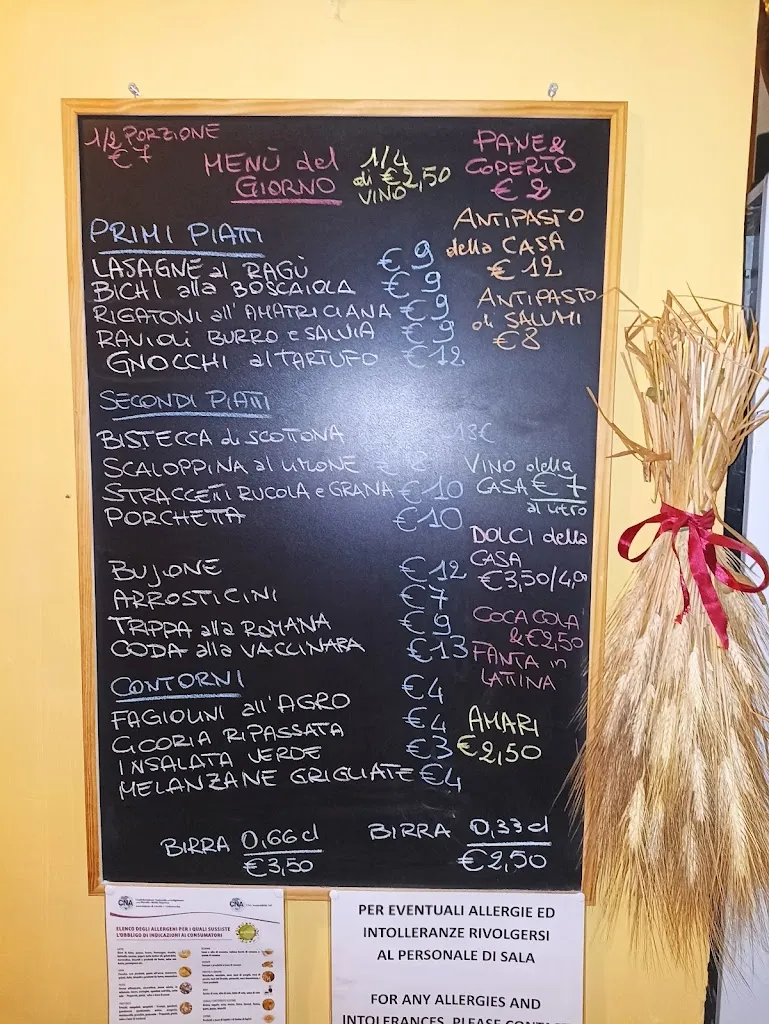 1/2 PORZIONE
€ 7
MENÙ del
GIORNO
1/4
di €2,50
VINO
PANE &
COPERTO
€ 2
ANTIPASTO
della CASA
€ 12
ANTIPASTO
di SALUMI
€8
PRIMI PIATTI
LASAGNE al RAGÙ €9
BICHI alla BOSCAIOLA €9
RIGATONI all'AMATRICIANA €9
RAVIOLI BURRO e SALVIA €9
GNOCCHI al TARTUFO €12
SECONDI PIATTI
BISTECCA di SCOTTONA 13€
SCALOPPINA al LIMONE € 8
STRACCETTI RUCOLA e GRANA €10
PORCHETTA €10
BUJONE €12
ARROSTICINI €7
TRIPPA alla ROMANA €9
CODA alla VACCINARA €13
VINO della
CASA €7
al litro
DOLCI della
CASA
€3,50/4,00
COCA COLA
& €2,50
FANTA in
LATTINA
AMARI
€2,50
CONTORNI
FAGIOLINI all'AGRO €4
CICORIA RIPASSATA €4
INSALATA VERDE €3
MELANZANE GRIGLIATE €4
BIRRA 0,66 cl
€3,50
BIRRA 0,33 cl
€2,50
CNA
CNA
ELENCO DEGLI ALLERGENI PER I QUALI SUSSISTE
L'OBBLIGO DI INDICAZIONI AI CONSUMATORI
PER EVENTUALI ALLERGIE ED
INTOLLERANZE RIVOLGERSI
AL PERSONALE DI SALA
FOR ANY ALLERGIES AND
INTOLERANCES, PLEASE